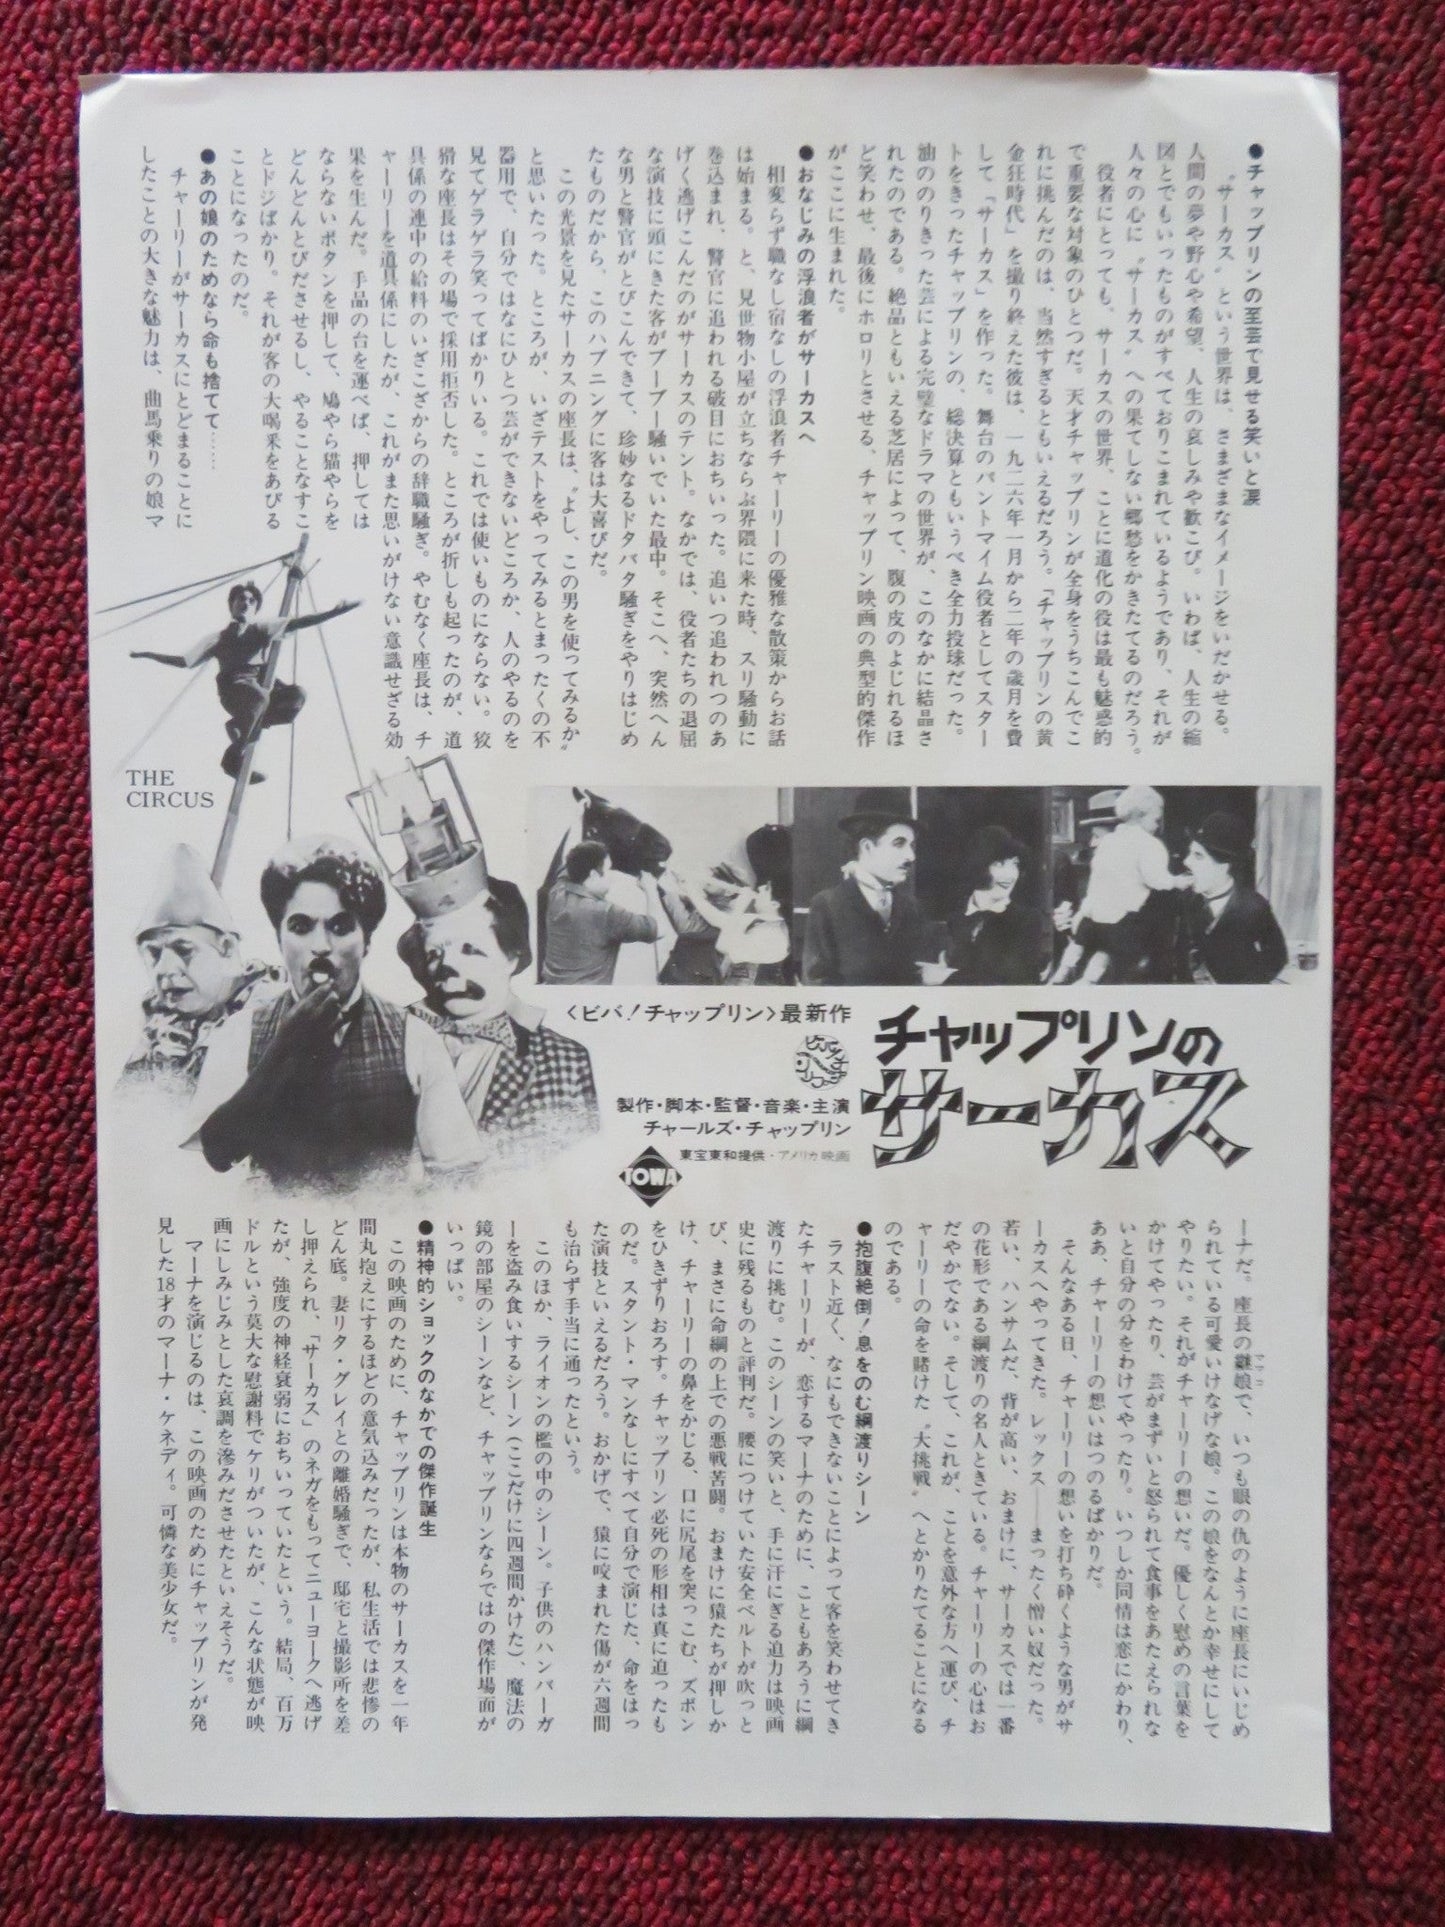 ●チャップリンの至芸で見せる笑いと涙
“サーカス”という世界は、さまざまなイメージをいだかせる。
人間の夢や野心や希望、人生の哀しみや歓こび。いわば、人生の縮
図とでもいったものがすべておりこまれているようであり、それが
人々の心に“サーカス”への果てしない郷愁をかきたてるのだろう。
役者にとっても、サーカスの世界、ことに道化の役は最も魅惑的
で重要な対象のひとつだ。天才チャップリンが全身をうちこんでこ
れに挑んだのは、当然すぎるともいえるだろう。「チャップリンの黄
金狂時代」を撮り終えた彼は、一九二六年一月から二年の歳月を費
して「サーカス」を作った。舞台のパントマイム役者としてスター
トをきったチャップリンの、総決算ともいうべき全力投球だった。
油ののりきった芸による完璧なドラマの世界が、このなかに結晶さ
れたのである。絶品ともいえる芝居によって、腹の皮のよじれるほ
ど笑わせ、最後にホロリとさせる、チャップリン映画の典型的傑作
がここに生まれた。
●おなじみの浮浪者がサーカスへ
相変らず職なし宿なしの浮浪者チャーリーの優雅な散策からお話
は始まる。と、見世物小屋が立ちならぶ界隈に来た時、スリ騒動に
巻込まれ、警官に追われる破目におちいった。追いつ追われつのあ
げく逃げこんだのがサーカスのテント。なかでは、役者たちの退屈
な演技に頭にきた客がブーブー騒いでいた最中。そこへ、突然へん
な男と警官がとびこんできて、珍妙なるドタバタ騒ぎをやりはじめ
たものだから、このハプニングに客は大喜びだ。
この光景を見たサーカスの座長は、“よし、この男を使ってみるか”
と思いたった。ところが、いざテストをやってみるとまったくの不
器用で、自分ではなにひとつ芸ができないどころか、人のやるのを
見てゲラゲラ笑ってばかりいる。これでは使いものにならない。狡
猾な座長はその場で採用拒否した。ところが折しも起ったのが、道
具係の連中の給料のいざこざからの辞職騒ぎ。やむなく座長は、チ
ャーリーを道具係にしたが、これがまた思いがけない意識せざる効
果を生んだ。手品の台を運べば、押しては
ならないボタンを押して、鳩やら猫やらを
どんどんとびださせるし、やることなすこ
とドジばかり。それが客の大喝采をあびる
ことになったのだ。
●あの娘のためなら命も捨てて……
チャーリーがサーカスにとどまることに
したことの大きな魅力は、曲馬乗りの娘マ
THE
CIRCUS
〈ビバ!チャップリン〉最新作
チャップリンの
サーカス
製作・脚本・監督・音楽・主演
チャールズ・チャップリン
東宝東和提供・アメリカ映画
TOWA
ーナだ。座長の継娘で、いつも眼の仇のように座長にいじめ
られている可愛いけなげな娘。この娘をなんとか幸せにして
やりたい。それがチャーリーの想いだ。優しく慰めの言葉を
かけてやったり、芸がまずいと怒られて食事をあたえられな
いと自分の分をわけてやったり。いつしか同情は恋にかわり、
ああ、チャーリーの想いはつのるばかりだ。
そんなある日、チャーリーの想いを打ち砕くような男がサ
ーカスへやってきた。レックス――まったく憎い奴だった。
若い、ハンサムだ、背が高い、おまけに、サーカスでは一番
の花形である綱渡りの名人ときている。チャーリーの心はお
だやかでない。そして、これが、ことを意外な方へ運び、チ
ャーリーの命を賭けた“大挑戦”へとかりたてることになる
のである。
●抱腹絶倒!息をのむ綱渡りシーン
ラスト近く、なにもできないことによって客を笑わせてき
たチャーリーが、恋するマーナのために、こともあろうに綱
渡りに挑む。このシーンの笑いと、手に汗にぎる迫力は映画
史に残るものと評判だ。腰につけていた安全ベルトが吹っと
び、まさに命綱の上での悪戦苦闘。おまけに猿たちが押しか
け、チャーリーの鼻をかじる、口に尻尾を突っこむ、ズボン
をひきずりおろす。チャップリン必死の形相は真に迫ったも
のだ。スタント・マンなしにすべて自分で演じた、命をはっ
た演技といえるだろう。おかげで、猿に咬まれた傷が六週間
も治らず手当に通ったという。
このほか、ライオンの檻の中のシーン。子供のハンバーガ
ーを盗み食いするシーン(ここだけに四週間かけた)、魔法の
鏡の部屋のシーンなど、チャップリンならではの傑作場面が
いっぱい。
●精神的ショックのなかでの傑作誕生
この映画のために、チャップリンは本物のサーカスを一年
間丸抱えにするほどの意気込みだったが、私生活では悲惨の
どん底。妻リタ・グレイとの離婚騒ぎで、邸宅と撮影所を差
し押えられ、「サーカス」のネガをもってニューヨークへ逃げ
たが、強度の神経衰弱におちいっていたという。結局、百万
ドルという莫大な慰謝料でケリがついたが、こんな状態が映
画にしみじみとした哀調を滲みださせたといえそうだ。
マーナを演じるのは、この映画のためにチャップリンが発
見した18才のマーナ・ケネディ。可憐な美少女だ。